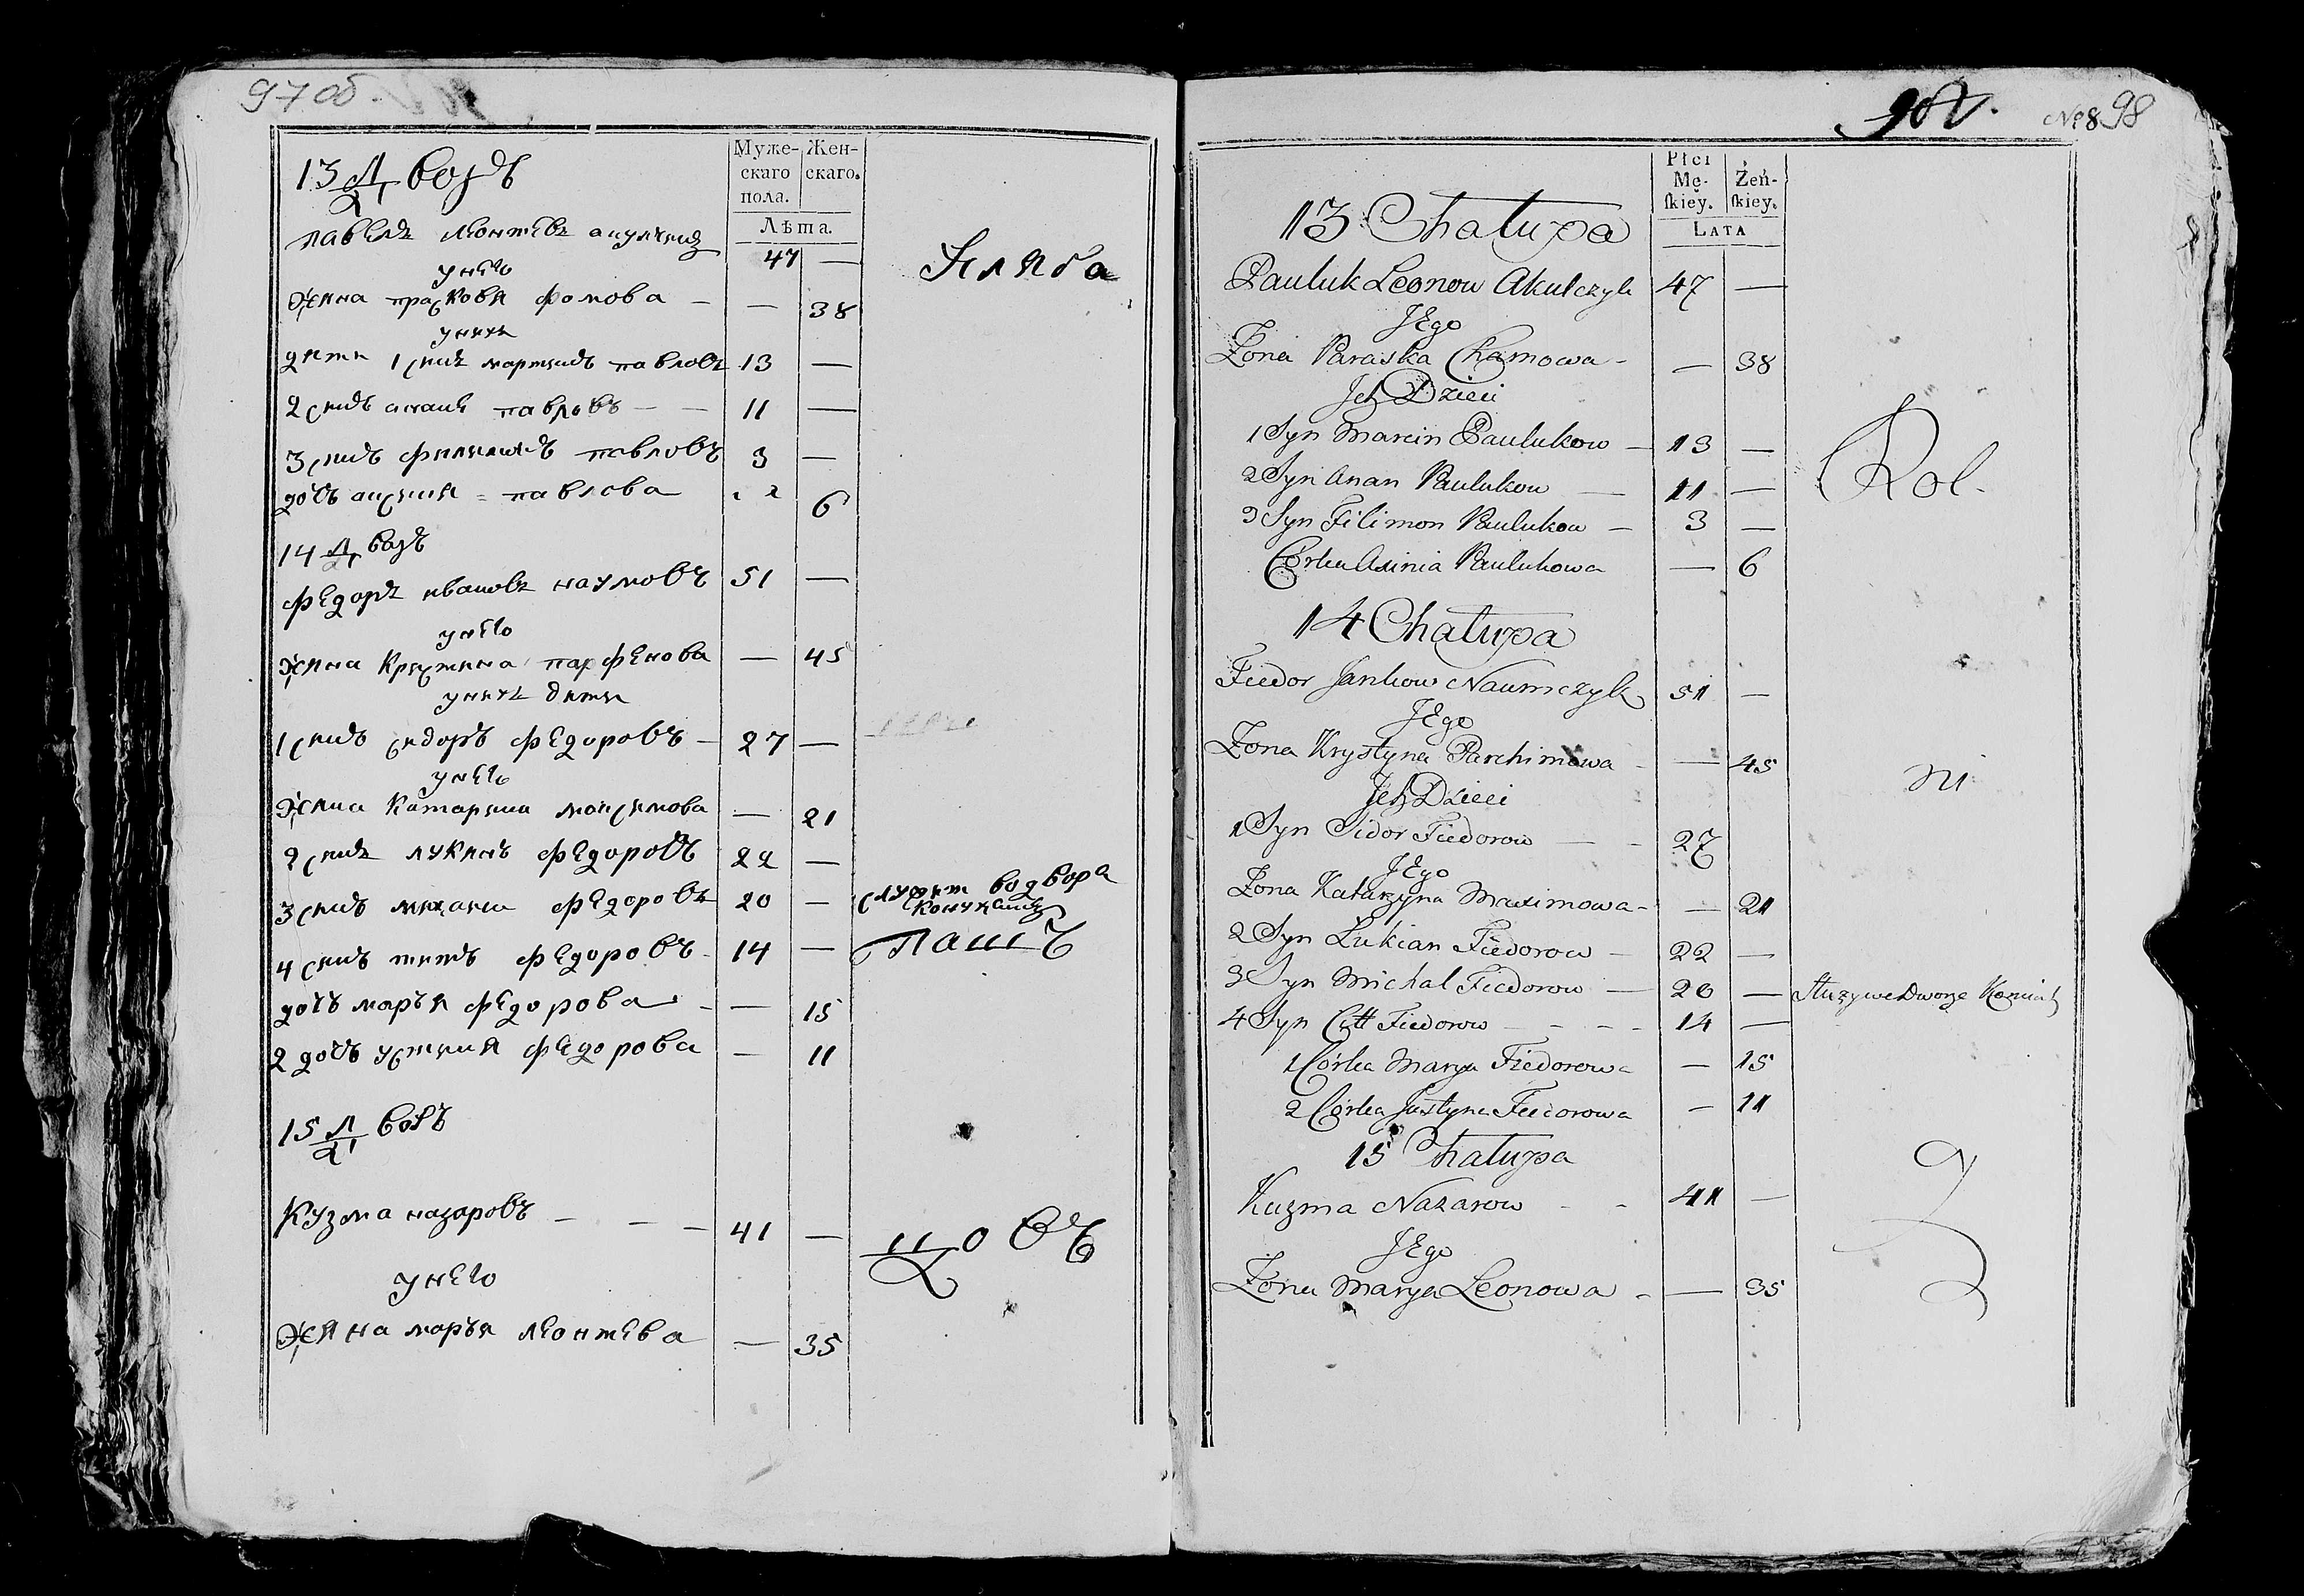 97 об.
Муже-
скаго
пола.
Жен-
скаго.
Лѣта.
13 Дворъ
павелъ леонтевъ акулчикъ 47 —
унего
жина прасковя фомова — — 38
унихъ
дети 1 синъ мартинъ павловъ 13 —
2 синъ анани павловъ — — 11 —
3 синъ филимонъ павловъ 3 —
дочъ аксиния = павлова 6
Хляба
14 Дворъ
федоръ ивановъ наумовъ 51 —
унего
жина Кристина парфенова — 45
унихъ дети
1 синъ сидоръ федоровъ — 27 —
унего
жина Катарина максимова — 21
2 синъ лукянъ федоровъ 22 —
3 синъ михаил федоровъ 20 — служит водвора
4 синъ титъ федоровъ 14 —
пашъ
дочъ маръя федорова — — 15
2 дочъ устиния федорова — 11
15 Дворъ
Кузма назаровъ — — — 41 —
цовъ
унего
жина маръя леонтева — 35
№ 8 98
Płci
Mę-
ſkiey.
Żeń-
ſkiey.
LATA
13 Chałupa
Pauluk Leonow Akulczyk 47 —
JEgo
Zona Paraska Chamowa — — 38
Jch Dzieci
1 Syn Marcin Paulukow — 13 —
2 Syn Anan Paulukow — 11 —
3 Syn Filimon Paulukow — 3 —
Córka Axinia Paulukowa — 6
Rol-
14 Chałupa
Fiedor Jankow Naumczyk 51 —
JEgo
Zona Krystyna Parchimowa — — 45
Jch Dzieci
ni
1 Syn Sidor Fiedorow — - 27
JEgo
Zona Katarzyna Maximowa — — 21
2 Syn Lukian Fiedorow — 22 —
3 Syn Michal Fiedorow — 20 — Służy we Dworze
4 Syn Citt Fiedorow - - - - 14 —
1 Córka Marya Fiedorowa — 15
2 Córka Justyna Fiedorowa — 11
15 Chałupa
Kuzma Nazarow - - 41 —
JEgo
Zona Marya Leonowa - — 35